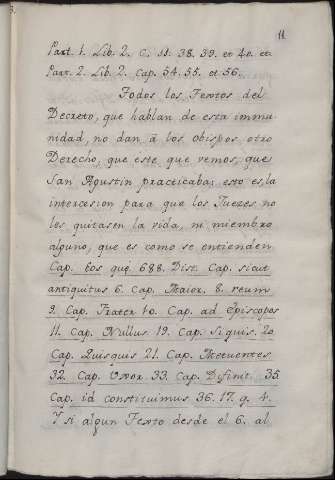 11
Part. 1. Lib. 2. C. 11. 38. 39. et 40. et
Part. 2. Lib. 2. Cap. 54. 55. et 56.
Todos los Textos del
Decreto, que hablan de esta inmu-
nidad, no dan â los obispos otro
Derecho, que este que vemos, que
San Agustin practicaba: esto es, la
intercesion para que los Juezes no
les quitasen la vida, ni miembro
alguno, que es como se entienden
Cap. Eos qui 688. Dist. Cap. sicut
antiquitus 6. Cap. Maior. 8. reum
9. Cap. Frater 10. Cap. ad Episcopos
11. Cap. Nullus. 19. Cap. Siquis. 20
Cap. Quisquis 21. Cap. Metuentes
32. Cap. Uxor. 33. Cap. Definit. 35
Cap. id constituimus 36. 17. q. 4.
Y si algun Texto desde el 6. al